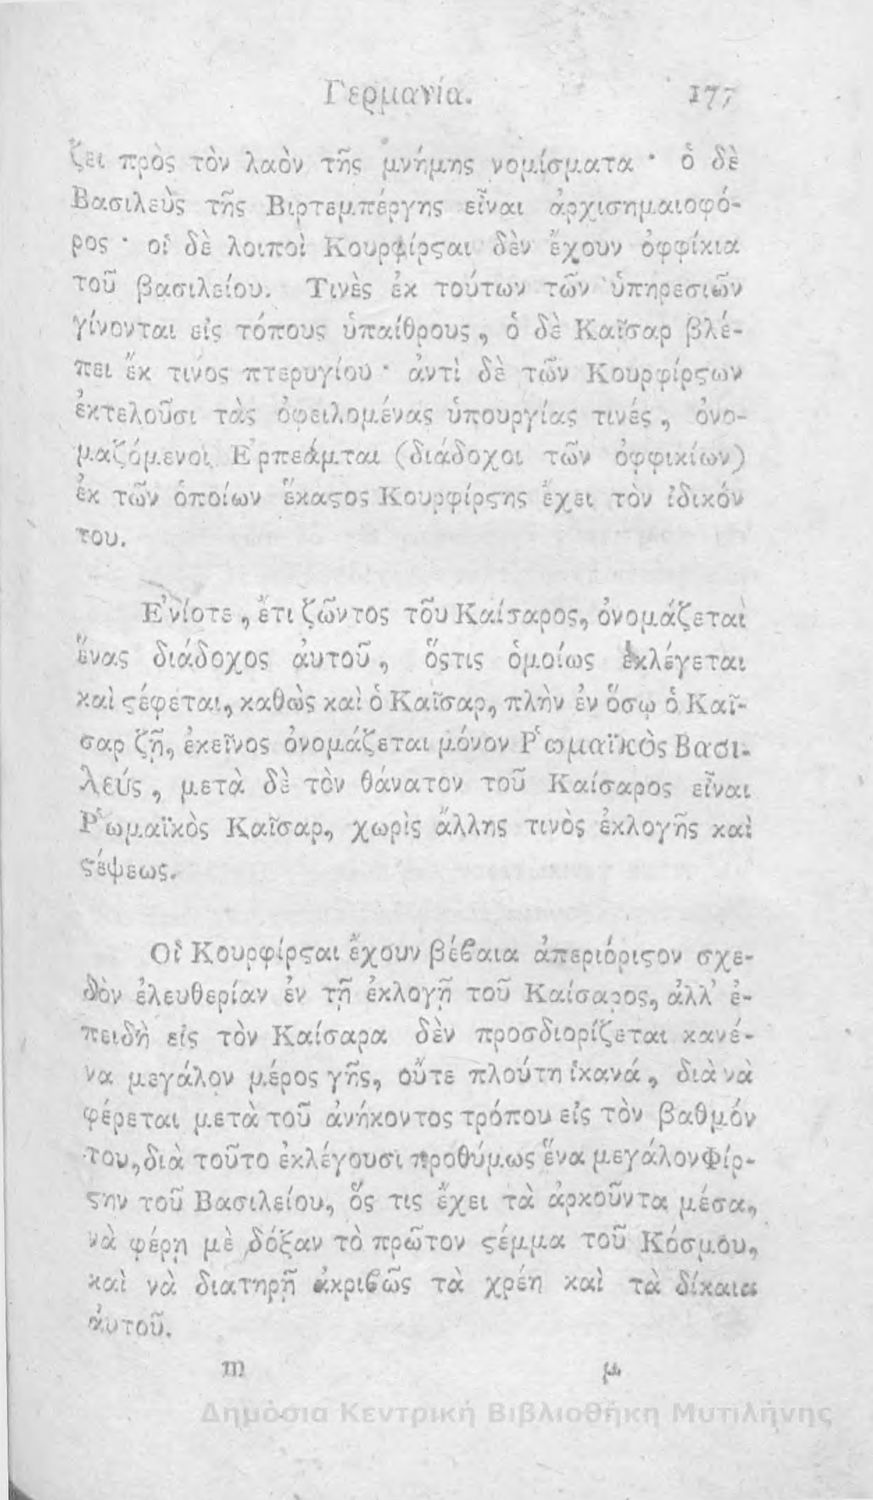 Γερμανία. 177
ζει πρὸς τὸν λαὸν τῆς μνήμης νομίσματα · ὁ δὲ
Βασιλεὺς τῆς Βιρτεμπέργης εἶναι ἀρχισημαιοφό-
ρος · οἱ δὲ λοιποὶ Κουρφίρςαι δὲν ἔχουν ὀφφίκια
τοῦ βασιλείου. Τινὲς ἐκ τούτων τῶν ὑπηρεσιῶν
γίνονται εἰς τόπους ὑπαίθρους, ὁ δὲ Καῖσαρ βλέ-
πει ἔκ τινος πτερυγίου · ἀντὶ δὲ τῶν Κουρφίρςων
ἐκτελοῦσι τὰς ὀφειλομένας ὑπουργίας τινές, ὀνο-
μαζόμενοι Ἐρπεάμται (διάδοχοι τῶν ὀφφικίων)
ἐκ τῶν ὁποίων ἕκαςος Κουρφίρςης ἔχει τὸν ἰδικόν
του.
Ἐνίοτε, ἔτι ζῶντος τοῦ Καίσαρος, ὀνομάζεται
ἕνας διάδοχος ἀυτοῦ, ὅςτις ὁμοίως ἐκλέγεται
καὶ ςέφεται, καθὼς καὶ ὁ Καῖσαρ, πλὴν ἐν ὅσῳ ὁ Καῖ-
σαρ ζῇ, ἐκεῖνος ὀνομάζεται μόνον Ῥωμαϊκὸς Βασι-
λεύς, μετὰ δὲ τὸν θάνατον τοῦ Καίσαρος εἶναι
Ῥωμαϊκὸς Καῖσαρ, χωρὶς ἄλλης τινὸς ἐκλογῆς καὶ
ςέψεως.
Οἱ Κουρφίρςαι ἔχουν βέϐαια ἀπεριόριςον σχε-
δὸν ἐλευθερίαν ἐν τῇ ἐκλογῇ τοῦ Καίσαρος, ἀλλ' ἐ-
πειδὴ εἰς τὸν Καίσαρα δὲν προσδιορίζεται κανέ-
να μεγάλον μέρος γῆς, οὔτε πλούτη ἱκανά, διὰ νὰ
φέρεται μετὰ τοῦ ἀνήκοντος τρόπου εἰς τὸν βαθμόν
του, διὰ τοῦτο ἐκλέγουσι προθύμως ἕνα μεγάλον Φίρ-
ςην τοῦ Βασιλείου, ὅς τις ἔχει τὰ ἀρκοῦντα μέσα,
νὰ φέρῃ μὲ δόξαν τὸ πρῶτον ςέμμα τοῦ Κόσμου,
καὶ νὰ διατηρῇ ἀκριϐῶς τὰ χρέη καὶ τὰ δίκαια
ἀυτοῦ.
m μ
Δημόσια Κεντρική Βιβλιοθήκη Μυτιλήνης